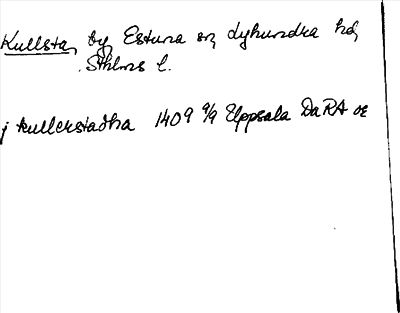 Kullsta, by, Estuna sn, Lyhundra hd,
Sthlms l.
j kullerstadha 1409 9/9 Uppsala DaRA or